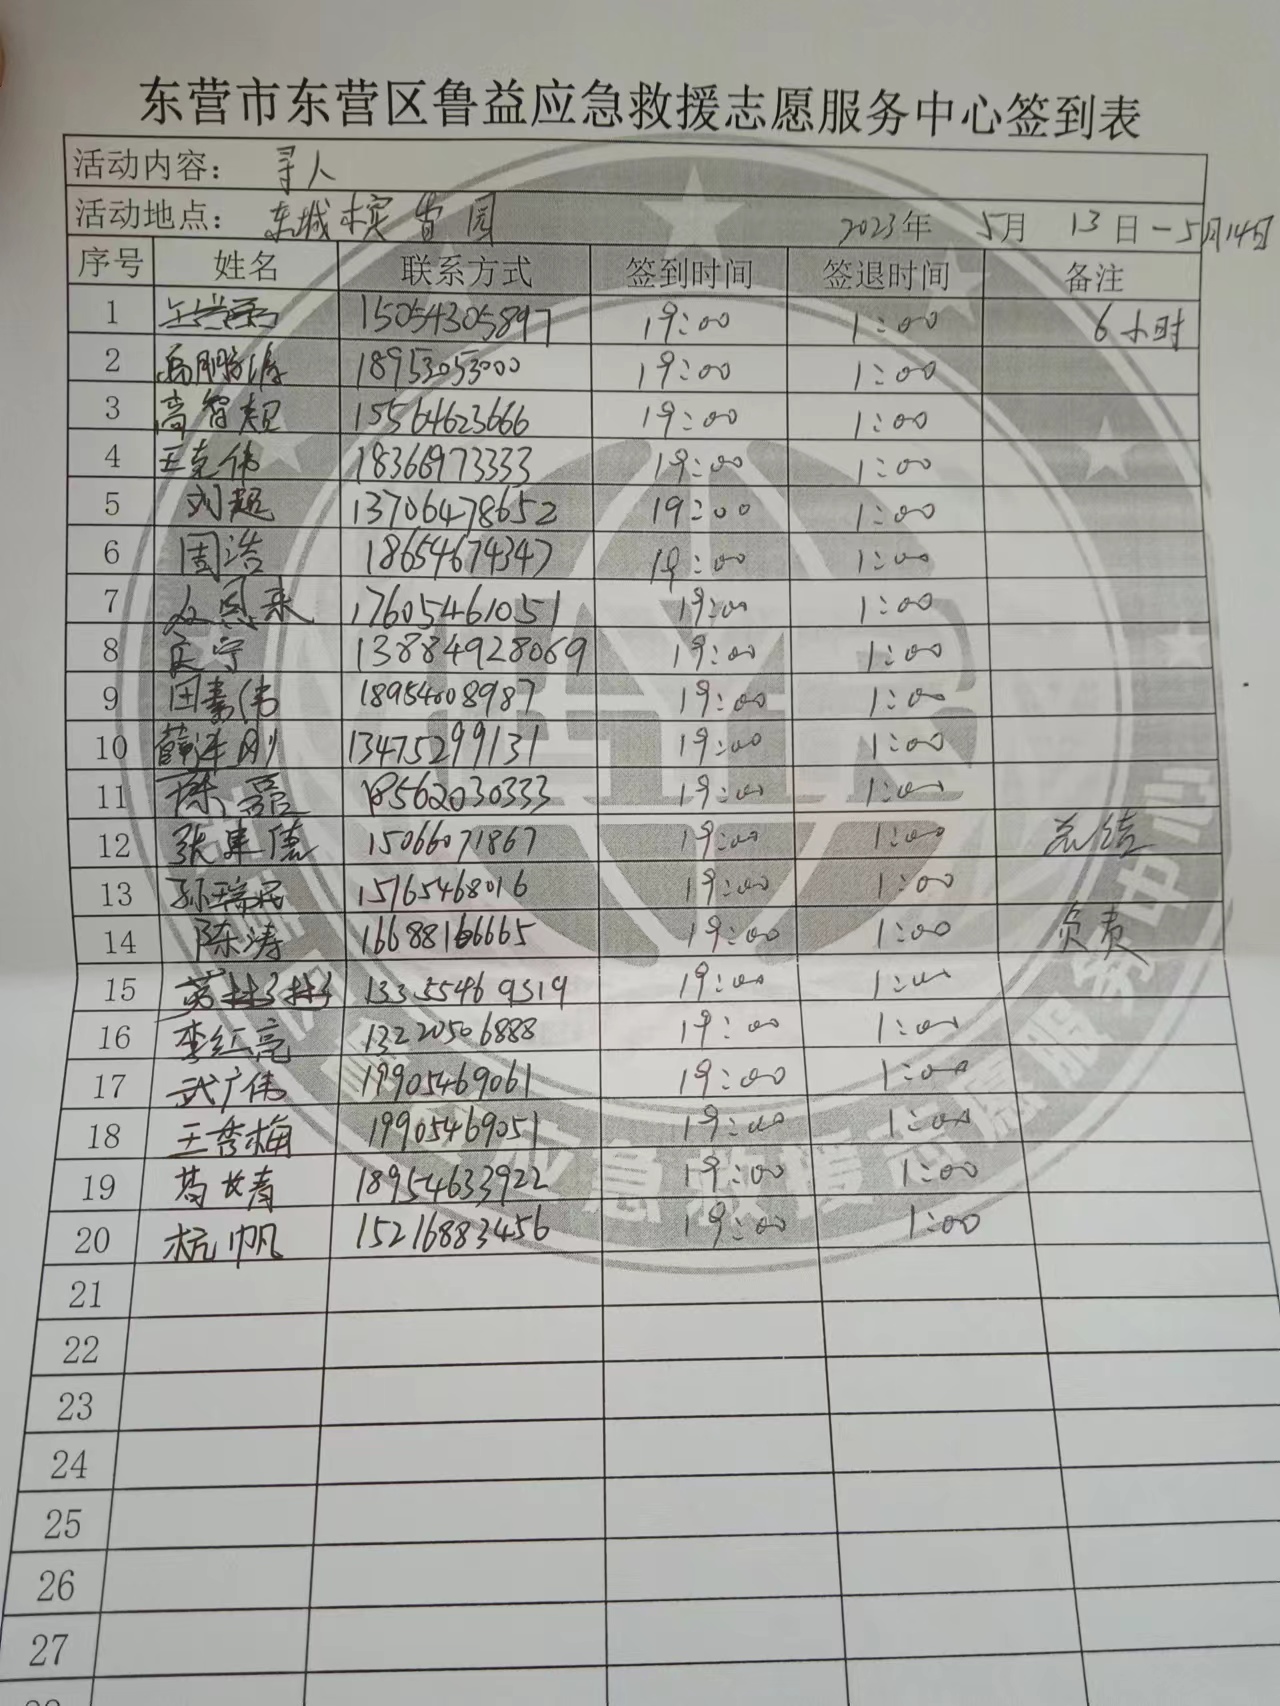 东营市东营区鲁益应急救援志愿服务中心签到表
活动内容： 寻人
活动地点： 东城 园 2023年 5月 13日-5月14日
序号 姓名 联系方式 签到时间 签退时间 备注
1 15054305897 19:00 1:00 6小时
2 18953053000 19:00 1:00
3 高智超 15564623666 19:00 1:00
4 王克伟 18366973333 19:00 1:00
5 刘超 13706478652 19:00 1:00
6 周浩 18654674347 19:00 1:00
7 17605461051 19:00 1:00
8 宁 13884928069 19:00 1:00
9 田素伟 18954608987 19:00 1:00
10 薛 刚 13475299131 19:00 1:00
11 陈磊 18562030333 19:00 1:00
12 张建德 15066071867 19:00 1:00 总结
13 孙瑞民 15765468016 19:00 1:00
14 陈涛 16688166665 19:00 1:00 负责
15 彬彬 13355469319 19:00 1:00
16 李红亮 13220506888 19:00 1:00
17 武广伟 19905469061 19:00 1:00
18 王秀梅 19905469051 19:00 1:00
19 18954633922 19:00 1:00
20 杭帆 15216883456 19:00 1:00
21
22
23
24
25
26
27